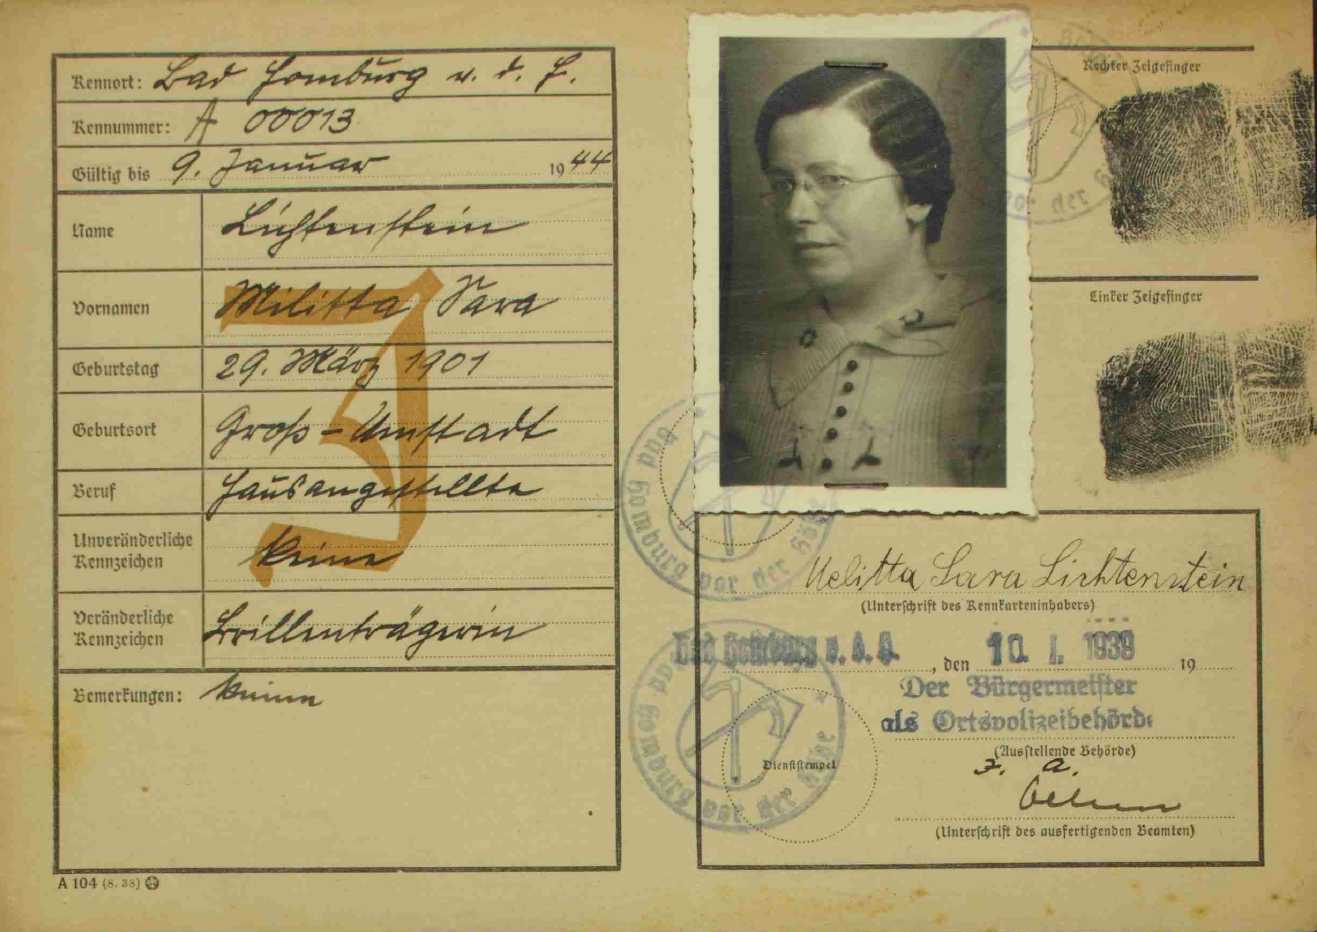 Kennort: Bad Homburg v. d. H.
Kennummer: A 00013
Gültig bis 9. Januar 1944
Name Lichtenstein
Vornamen Militta Sara
Geburtstag 29. März 1901
Geburtsort Groß-Umstadt
Beruf Hausangestellte
Unveränderliche Kennzeichen keine
Veränderliche Kennzeichen Brillenträgerin
Bemerkungen: keine
J
A 104 (8. 38)
Rechter Zeigefinger
Linker Zeigefinger
Bad Homburg vor der Höhe
Melitta Sara Lichtenstein
(Unterschrift des Kennkarteninhabers)
Bad Homburg v. d. H. , den 10. I. 1939 19
Der Bürgermeister
als Ortspolizeibehörde
(Ausstellende Behörde)
Dienststempel
J. A.
(Unterschrift des ausfertigenden Beamten)
Bad Homburg vor der Höhe